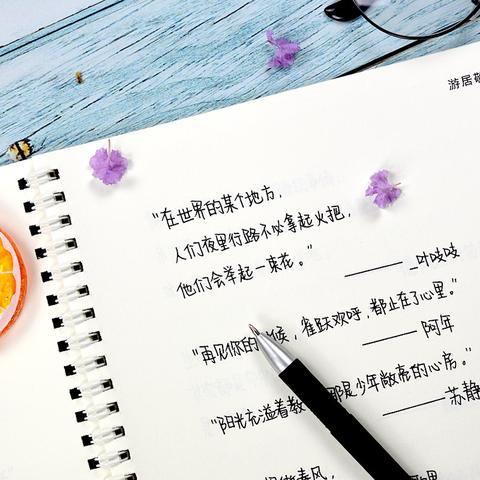 游居敬
"在世界的某个地方，
人们夜里行路不必拿起火把，
他们会举起一束花。"
——— _叶吱吱
"再见你的 候，雀跃欢呼，都止在了心里。"
——— 阿年
"阳光充溢着教 那是少年敞亮的心房。"
——— 苏静
春风，